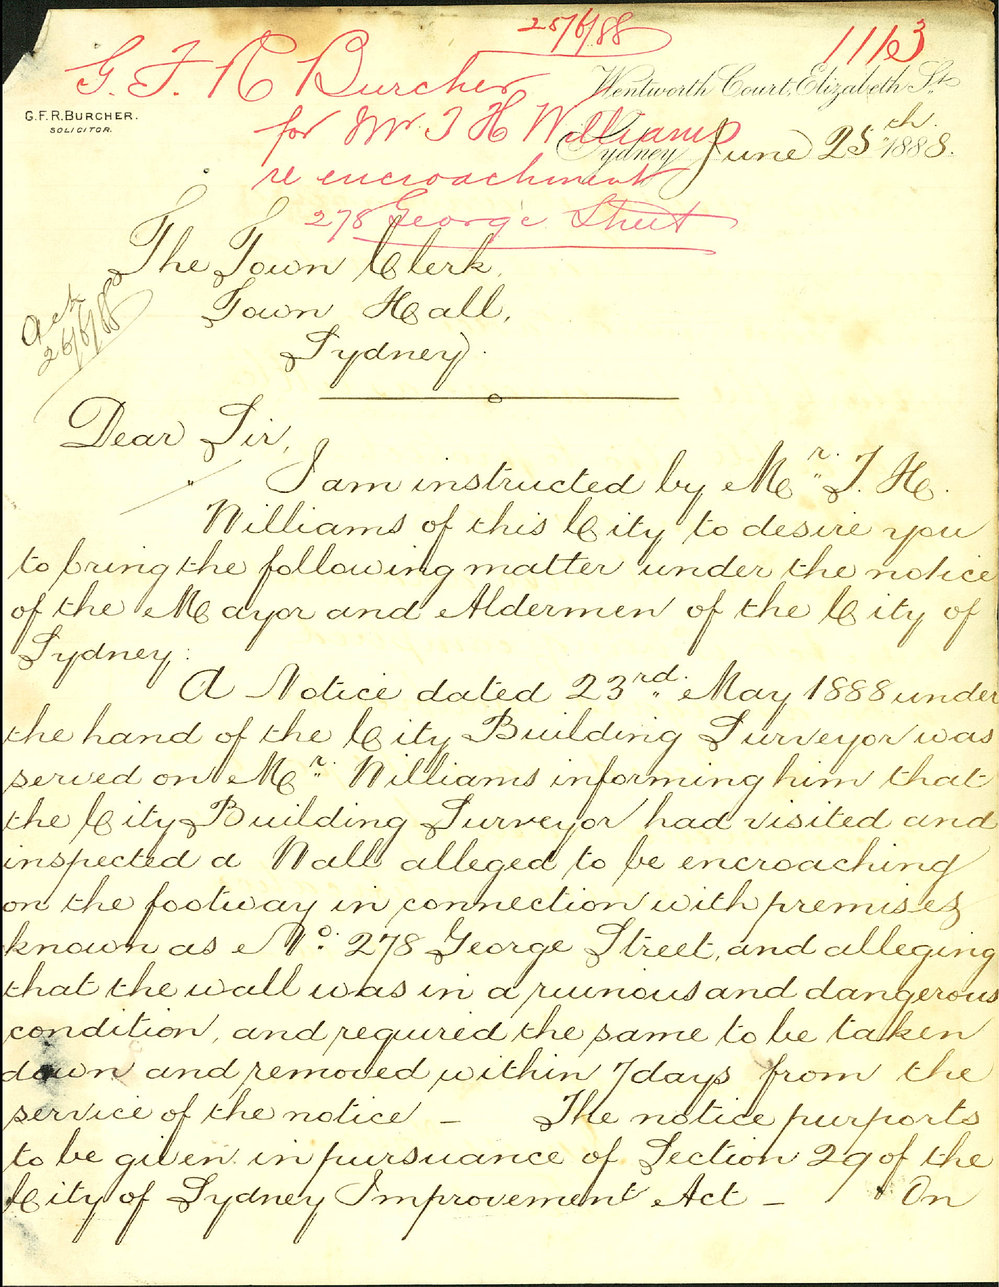 25/6/88
1163
G. F. R Burcher
for Mr. T H Williams
re encroachment
278 George Street
G.F.R. BURCHER.
SOLICITOR.
Wentworth Court, Elizabeth St.
Sydney June 25th 1888.
The Town Clerk,
Town Hall,
Sydney.
Ack
26/6/88
Dear Sir,
I am instructed by Mr. T. H.
Williams of this City to desire you
to bring the following matter under the notice
of the Mayor and Aldermen of the City of
Sydney:
A Notice dated 23rd. May 1888 under
the hand of the City Building Surveyor was
served on Mr. Williams informing him that
the City Building Surveyor had visited and
inspected a Wall alleged to be encroaching
on the footway in connection with premises
known as No. 278 George Street, and alleging
that the wall was in a ruinous and dangerous
condition, and required the same to be taken
down and removed within 7 days from the
service of the notice – The notice purports
to be given in pursuance of Section 29 of the
City of Sydney Improvement Act – On